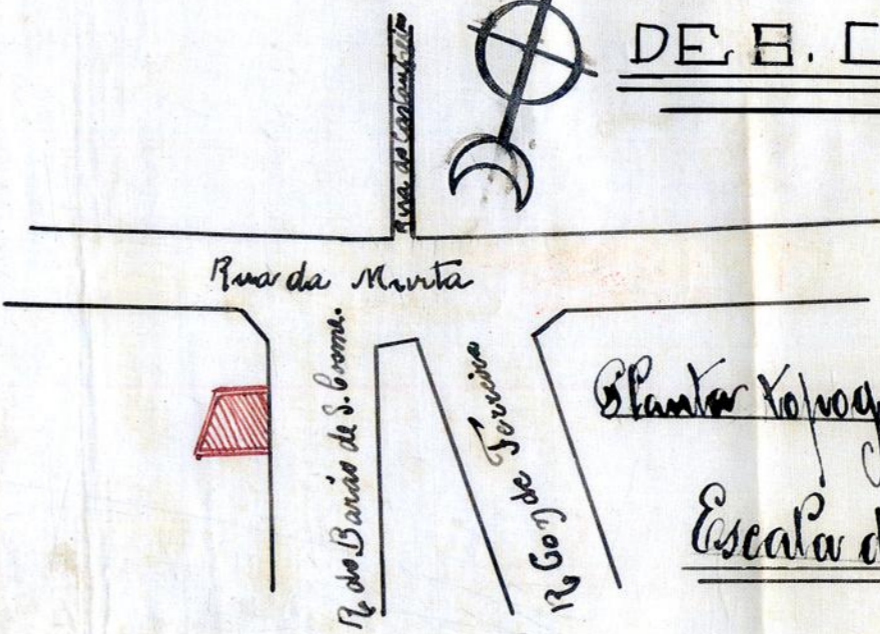 DE S. C
Rua do
Rua da Murta
R. do Barão de S. Cosme.
R. Coz de Ferreira
Planta topog
Escala d